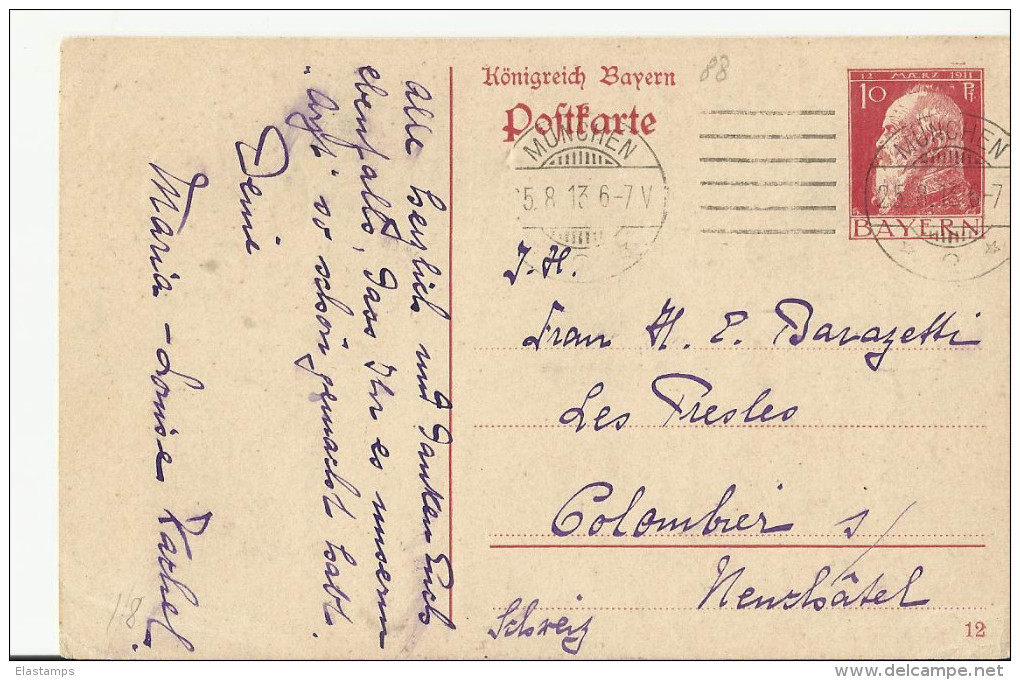 Königreich Bayern
Postkarte
88
12 MÆRZ 1911
10 Pf.
BAYERN
MÜNCHEN
25.8.13 6-7 V
MÜNCHEN
25.8.13 6-7
I. H.
Frau H. E. Barazetti
Les Tresles
Colombier s/
Neuchâtel
Schweiz
12
alle herzlich und danken Euch
ebenfalls, dass Ihr es unserm
so schön gemacht habt.
Deine
Maria-Louise
1.8
Elastamps
www.delcampe.net